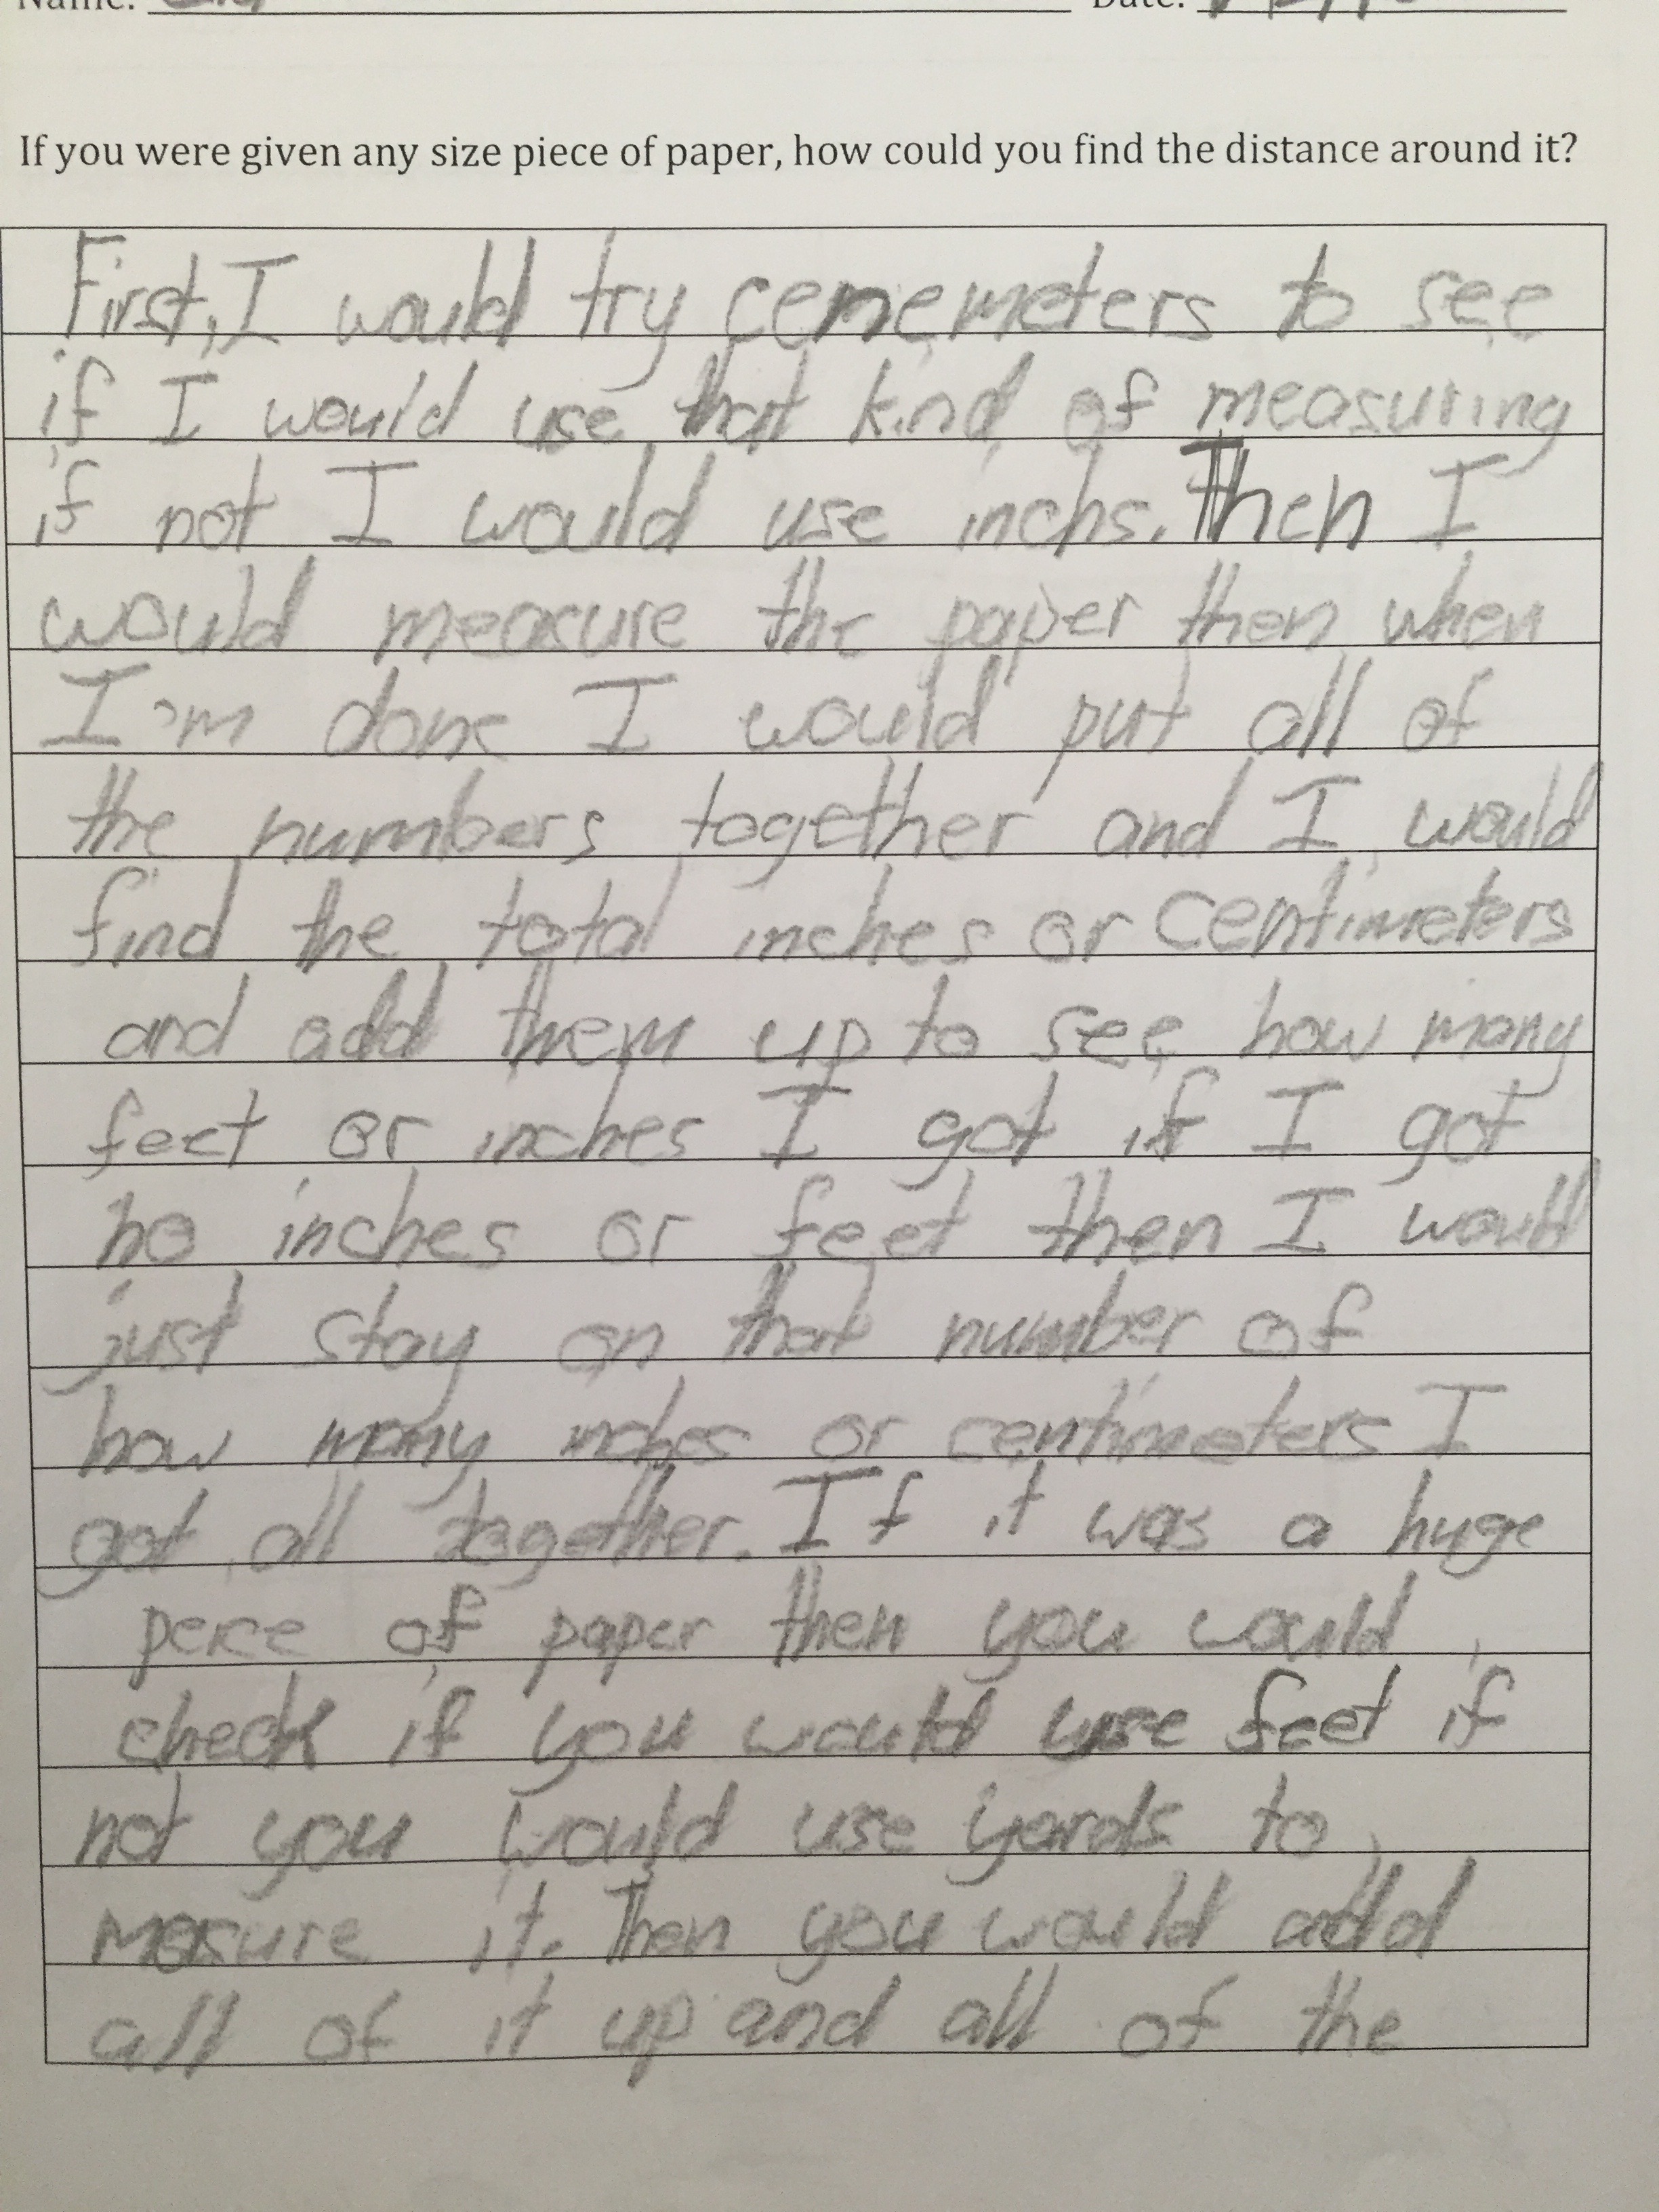 Name:
Date:
If you were given any size piece of paper, how could you find the distance around it?
First, I would try cenemeters to see
if I would use that kind of measuring
if not I would use inchs. Then I
would measure the paper then when
I'm done I would put all of
the numbers together and I would
find the total inches or centimeters
and add them up to see how many
feet or inches I got if I got
no inches or feet then I would
just stay on that number of
how many inches or centimeters I
got all together. If it was a huge
peice of paper then you would
check if you would use feet if
not you would use yards to
mesure it. Then you would add
all of it up and all of the